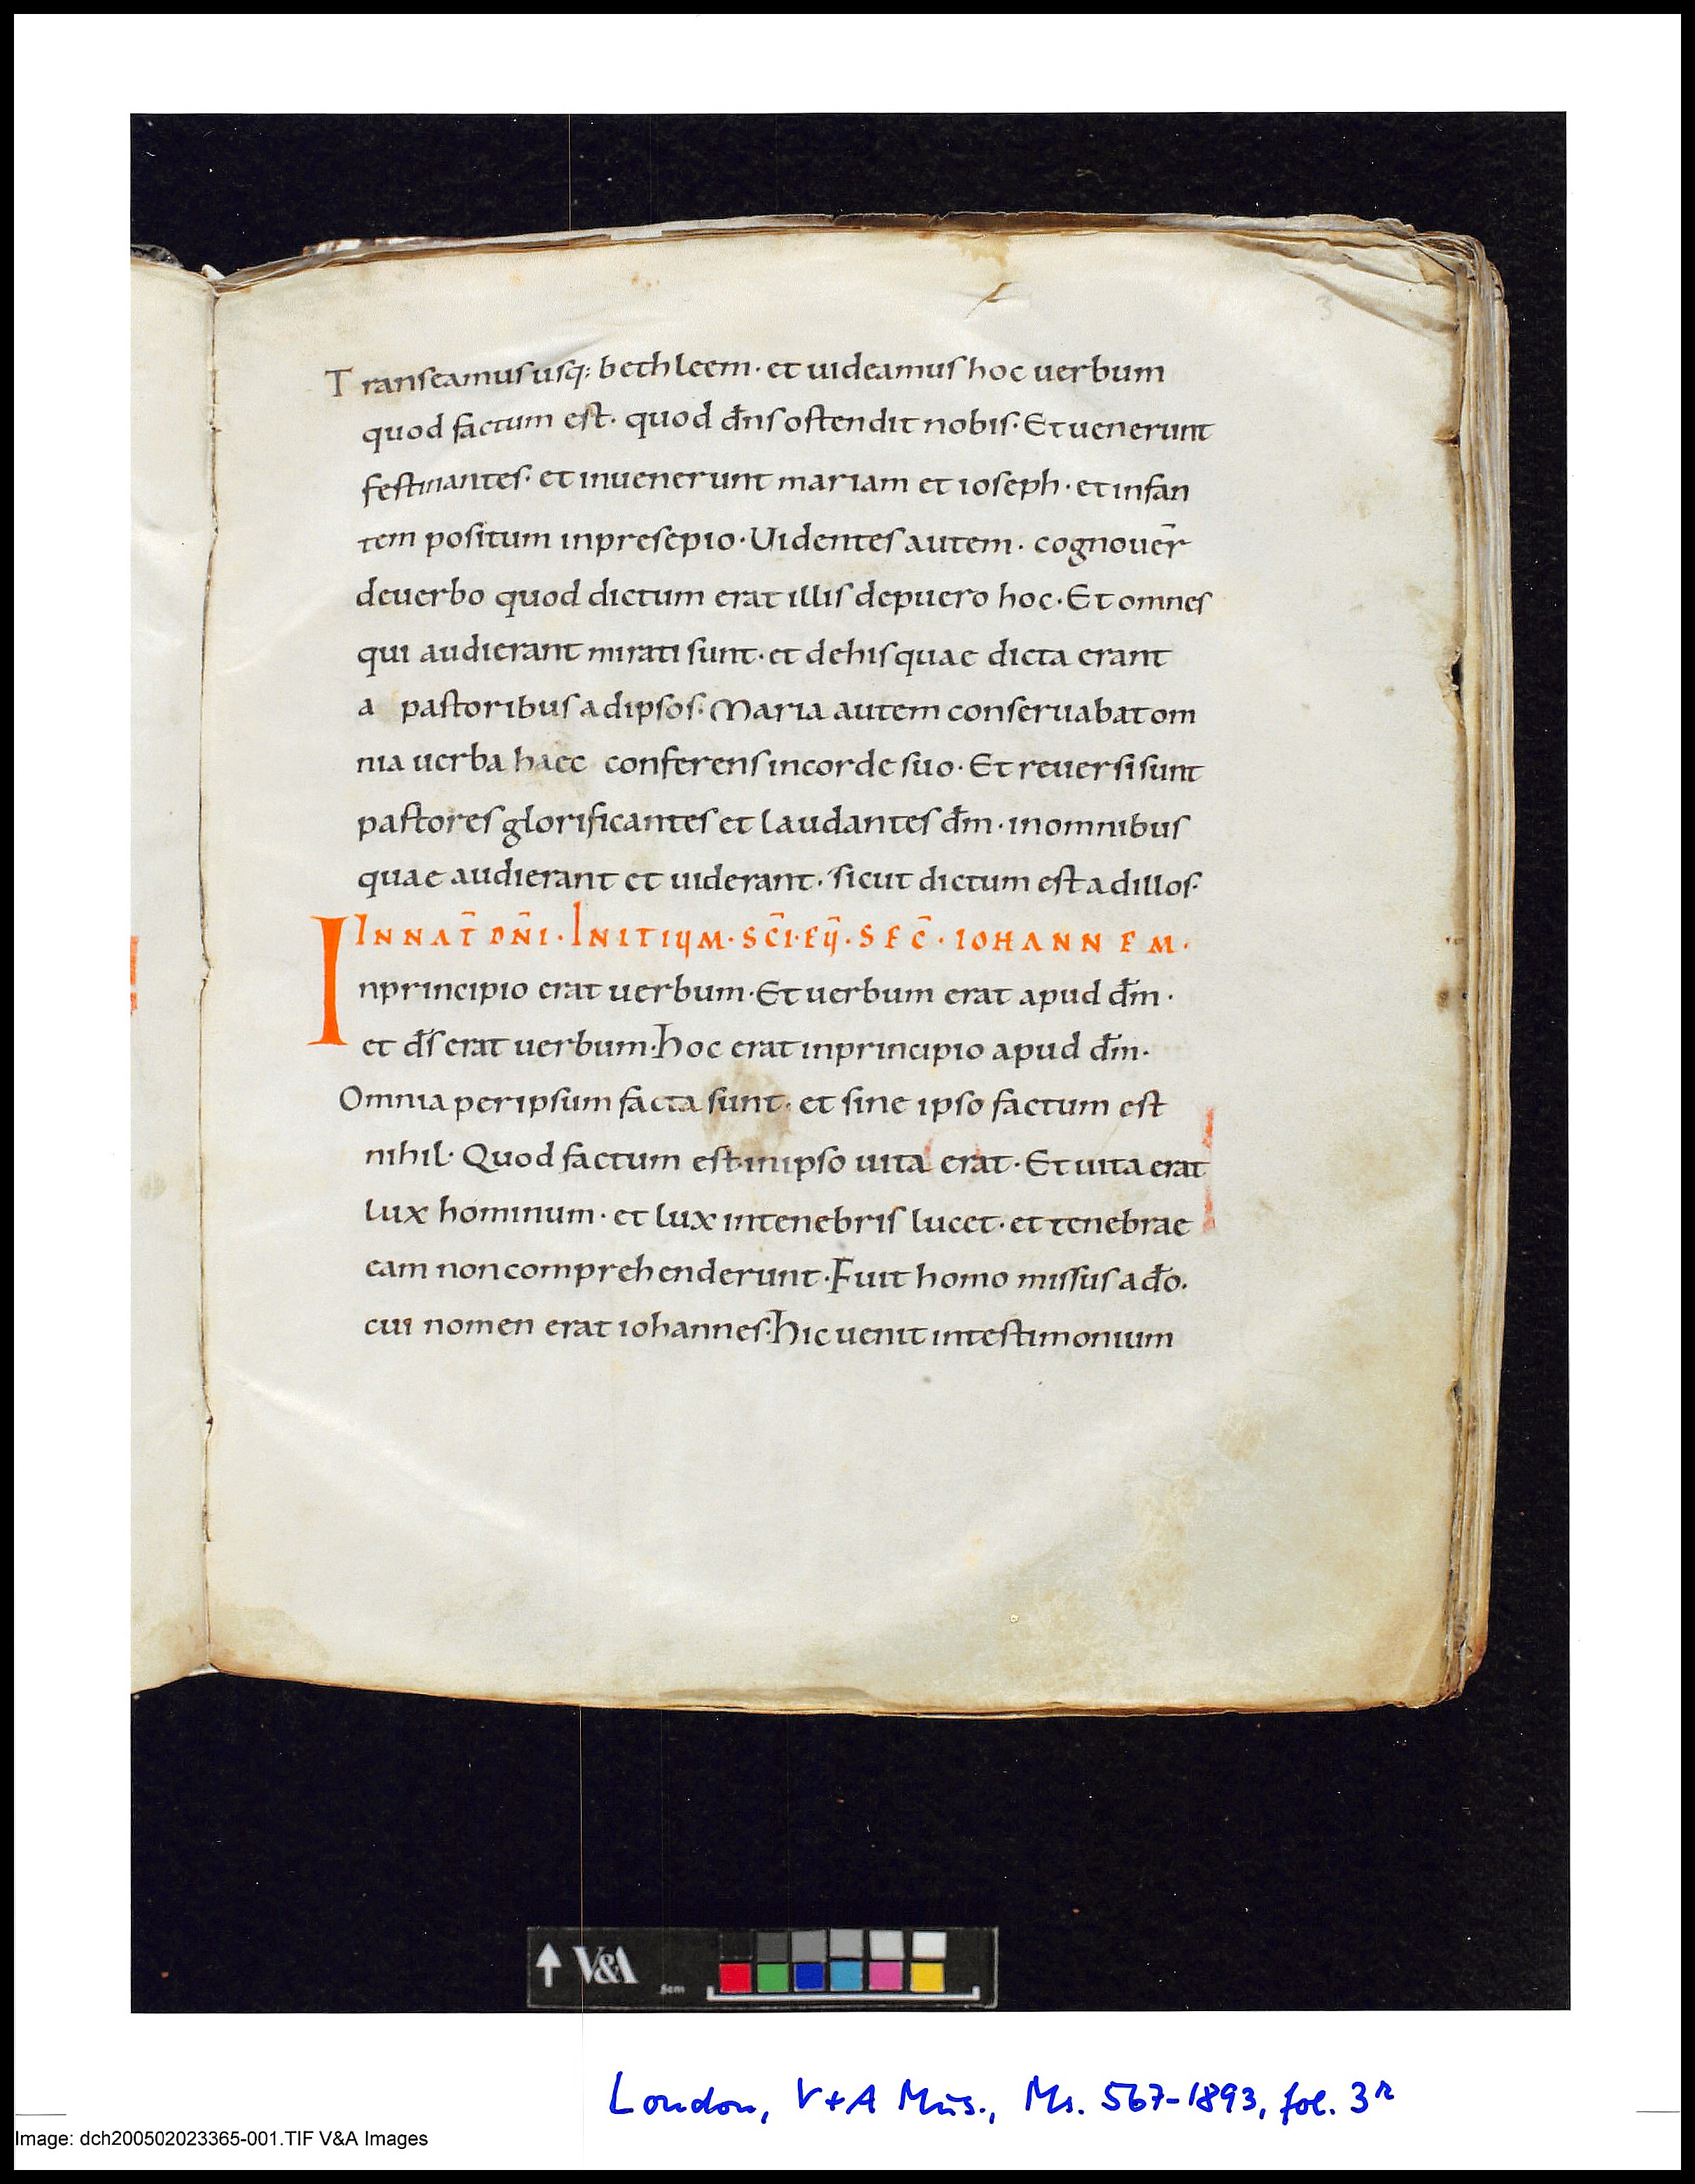 3
Transeamus usq; bethleem · et uideamus hoc uerbum
quod factum est · quod dn̄s ostendit nobis · Et uenerunt
festinantes · et inuenerunt mariam et ioseph · et infan
tem positum inpresepio · Uidentes autem · cognouer̄
deuerbo quod dictum erat illis depuero hoc · Et omnes
qui audierant mirati sunt · et dehis quae dicta erant
a pastoribus adipsos · Maria autem conseruabat om
nia uerba haec conferens incorde suo · Et reuersi sunt
pastores glorificantes et laudantes dm̄ · inomnibus
quae audierant et uiderant · sicut dictum est adillos ·
IN NAT̄ DN̄I · INITIUM · SC̄I · EŪ · SEC̄ · IOHANNEM ·
Inprincipio erat uerbum · Et uerbum erat apud dm̄ ·
et ds̄ erat uerbum · hoc erat inprincipio apud dm̄ ·
Omnia per ipsum facta sunt · et sine ipso factum est
nihil · Quod factum est · inipso uita erat · Et uita erat
lux hominum · et lux intenebris lucet · et tenebrae
eam noncomprehenderunt · Fuit homo missus ado̅ ·
cui nomen erat iohannes · hic uenit intestimonium
V&A
5cm
London, V+A Mus., Ms. 567-1893, fol. 3r
Image: dch200502023365-001.TIF V&A Images